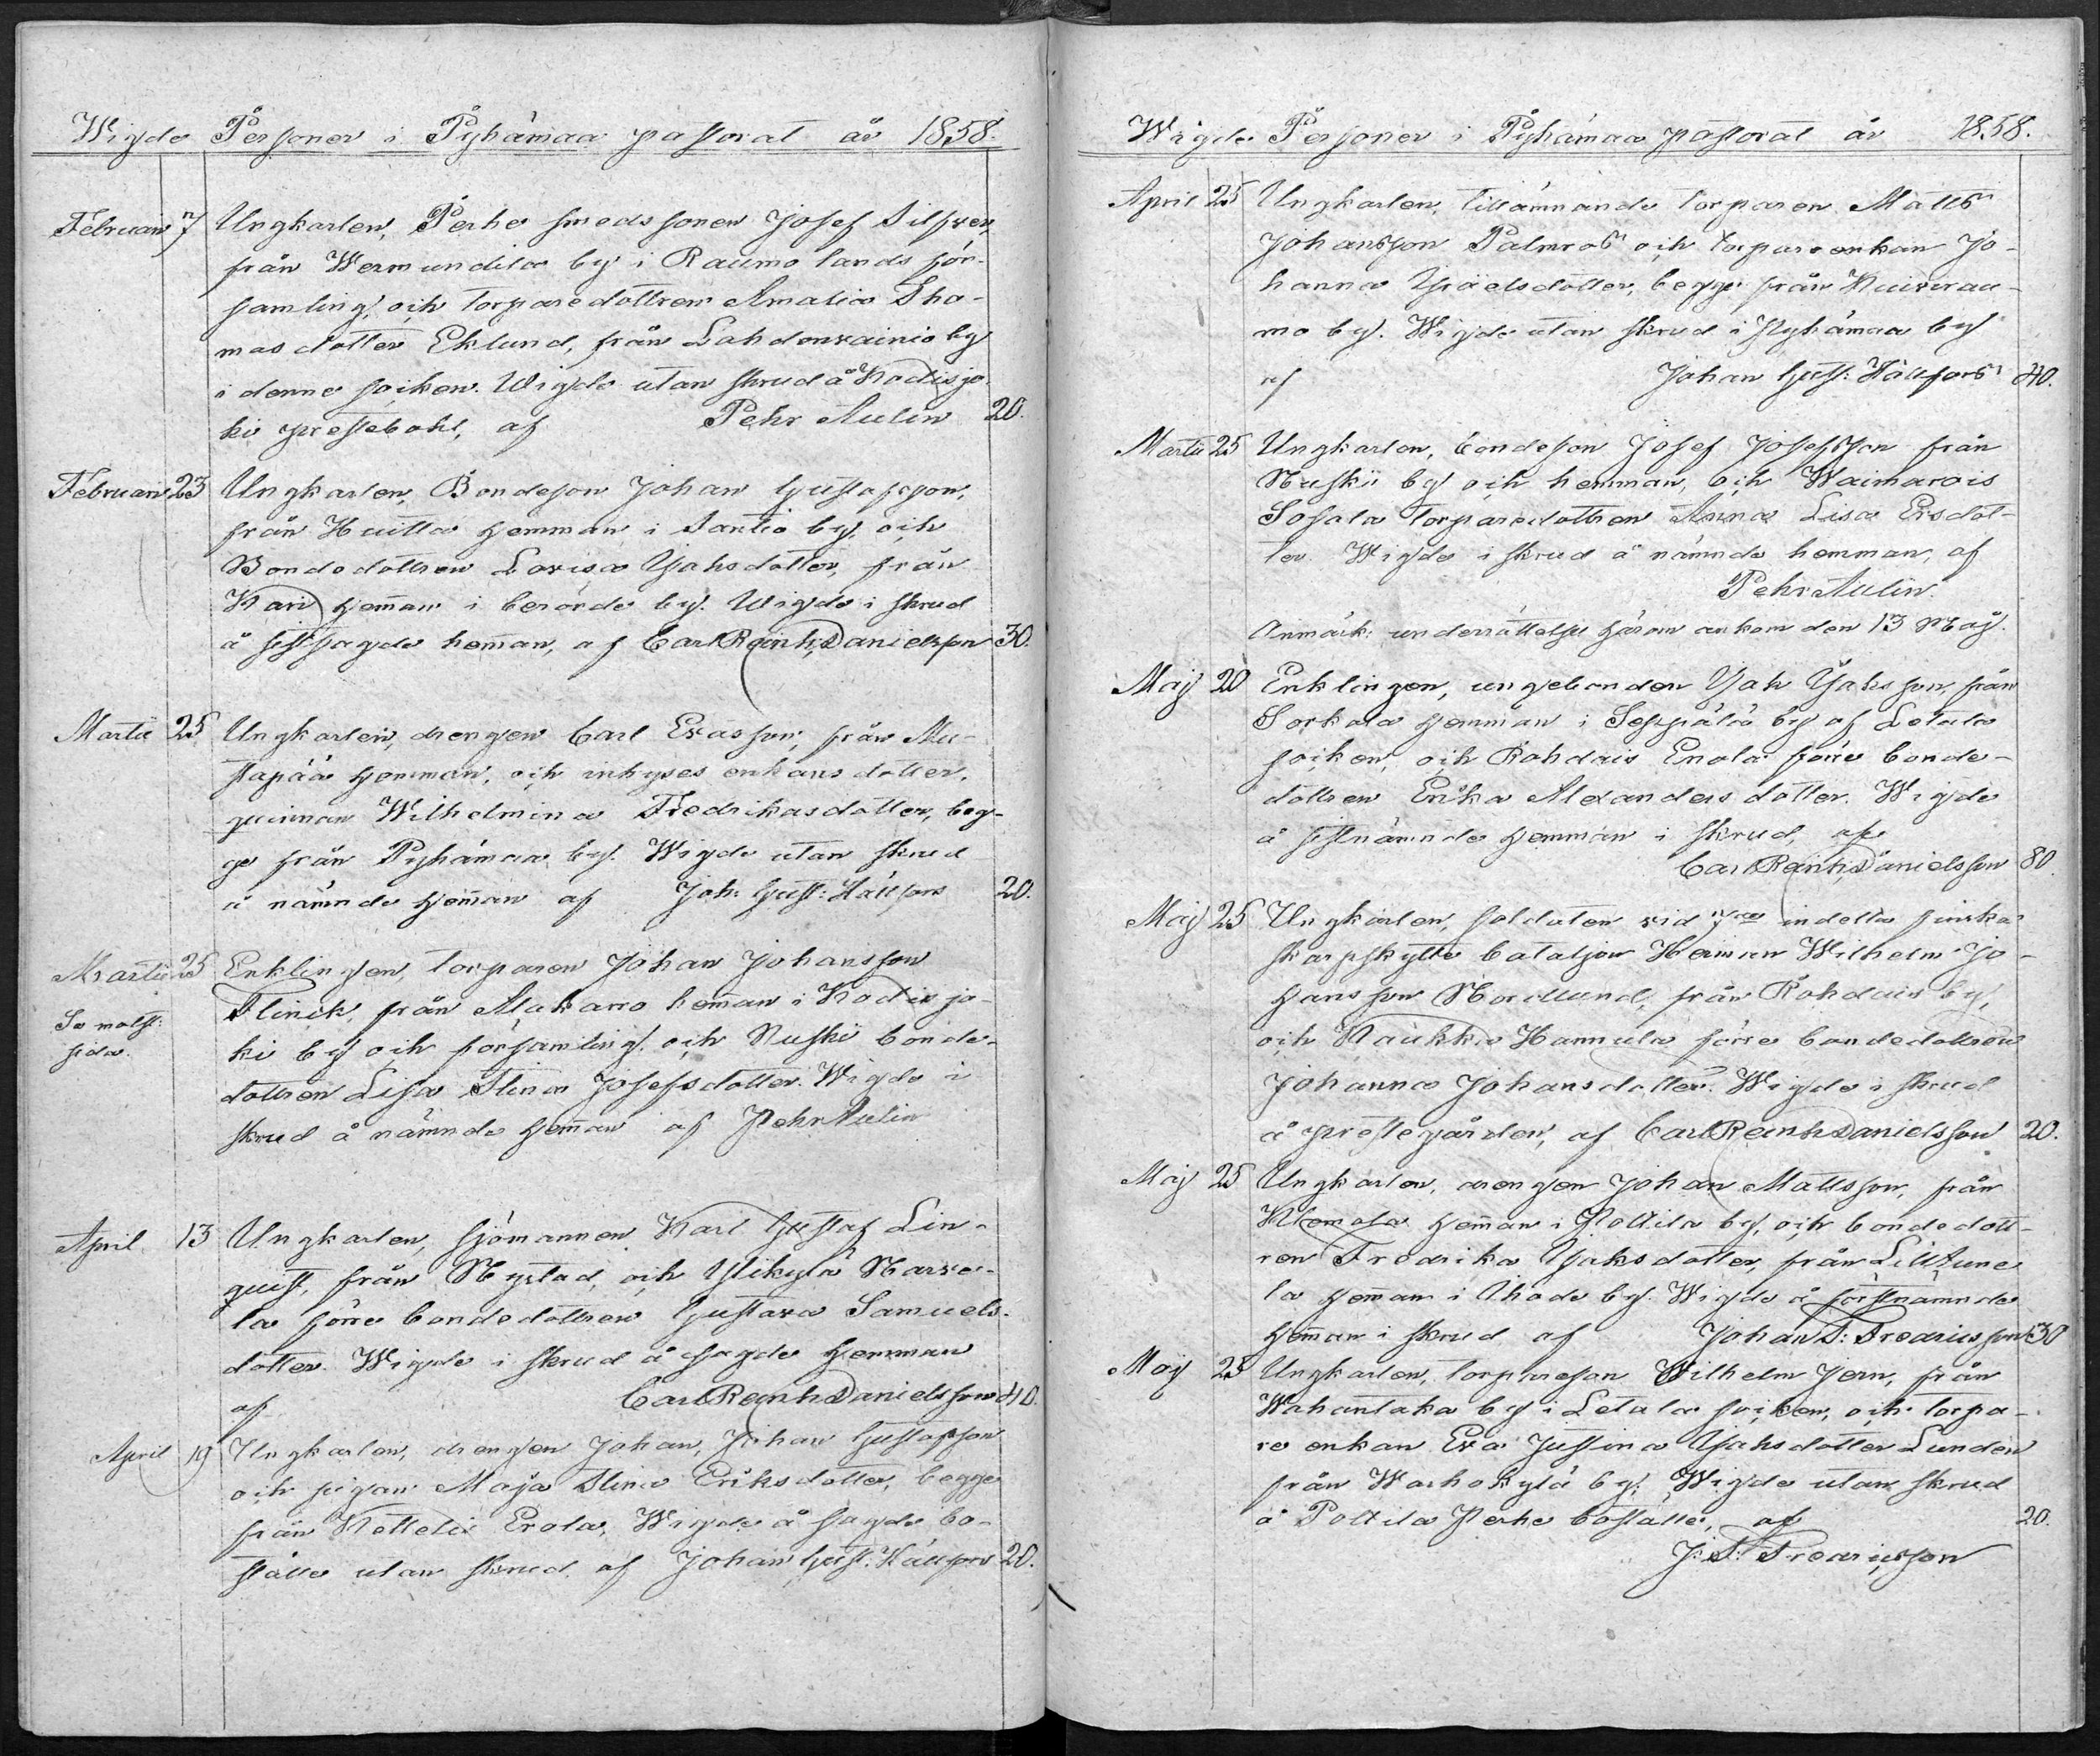 Wigde Personer i Pyhämaa pastorat år 1858.
Februarii 7 Ungkarlen, Perho smeds sonen Josef Silfver,
från Wermundila by i Raumo lands för-
samling, och torparedottren Amalia Tho-
mas dotter Eklund, från Lahdenvainio by
i denne socken. Wigde utan skrud å Kodisjo-
ki prestebohl, af Pehr Aulin 20.
Februarii 23 Ungkarlen, Bondeson Johan Gustafsson,
från Huitta hemman i Santio by, och
Bondedottren Lovisa Isaksdotter, från
Kari hemman i berörde by. Wigde i skrud
å sistsagde hemman, af Carl Reinh. Danielsson 30.
Martii 25 Ungkarlen, drengen Carl Evasson, från Mu-
stapää hemman, och inhyses enkans dotter,
quinnan Wilhelmina Fredrikasdotter, beg-
ge från Pyhämaa by. Wigde utan skrud
å nämnde hemman af Joh: Gust: Hällfors 20.
Martii 25 Enklingen, torparen Johan Johansson
Se motst:
sida.
Flinck, från Alakarro hemman i Kodisjo-
ki by och församling, och Ruski bonde-
dottren Lisa Stina Josefsdotter. Wigde i
skrud å nämnde hemman af Pehr Aulin
April 13 Ungkarlen, sjömannen Karl Gustaf Lin-
quist, från Nystad, och Ylikylä Marve-
la förre bondedottren Gustava Samuels-
dotter. Wigde i skrud å sagde hemman
af Carl Reinh. Danielsson 40.
April 19 Ungkarlen, drengen Johan, Johan Gustafsson
och pigan Maja Stina Eriksdotter, begge
från Ketteli Erola, Wigde å sagde bo-
ställe utan skrud af Johan Gust. Hällfors 20.
Wigde Personer i Pyhämaa pastorat år 1858.
April 25 Ungkarlen, tillämnande torparen Matts
Johansson Palmros och torpareenkan Jo-
hanna Israelsdotter, begge från Kuivrau-
mo by. Wigde utan skrud i Pyhämaa by
af Johan Gust: Hällfors 40.
Martii 25 Ungkarlen, bondeson Josef Josefsson från
Ruski by och hemman, och Waimarois
Sofala torparedottren Anna Lisa Ersdot-
ter. Wigde i skrud å nämnde hemman, af
Pehr Aulin.
Anmärk: underrättelse härom ankom den 13 Maj.
Maj 20 Enklingen, ungebonden Isak Isaksson, från
Sorkala hemman i Seppälä by af Letala
socken, och Rohdais Enola förre bonde-
dottren Erika Alexanders dotter. Wigde
å sistnämnde hemman i skrud, af
Carl Reinh. Danielsson 80.
Maj 25 Ungkarlen, soldaten vid 7de indelta finska
skarpskytte bataljon Herman Wilhelm Jo-
hansson Nordlund, från Rohdais by,
och Kaukka Hannula förre bondedottren
Johanna Johansdotter. Wigde i skrud
å prestegården, af Carl Reinh Danielsson 20.
Maj 25 Ungkarlen, drengen Johan Mattsson, från
Klemola hemman i Pottila by, och bondedott-
ren Fredrika Isaksdotter, från Lilljune
la hemman i Ihode by. Wigde å förstnämnde
hemman i skrud af Johan T: Fredriksson 30
Maj 25 Ungkarlen, torpareson Wilhelm Jern, från
Wahantaka by i Letala socken, och torpa-
re enkan Eva Justina Isaksdotter Lunden
från Warhokylä by. Wigde utan skrud
å Poltila Perhe boställe, af 20.
J: T: Fredricsson